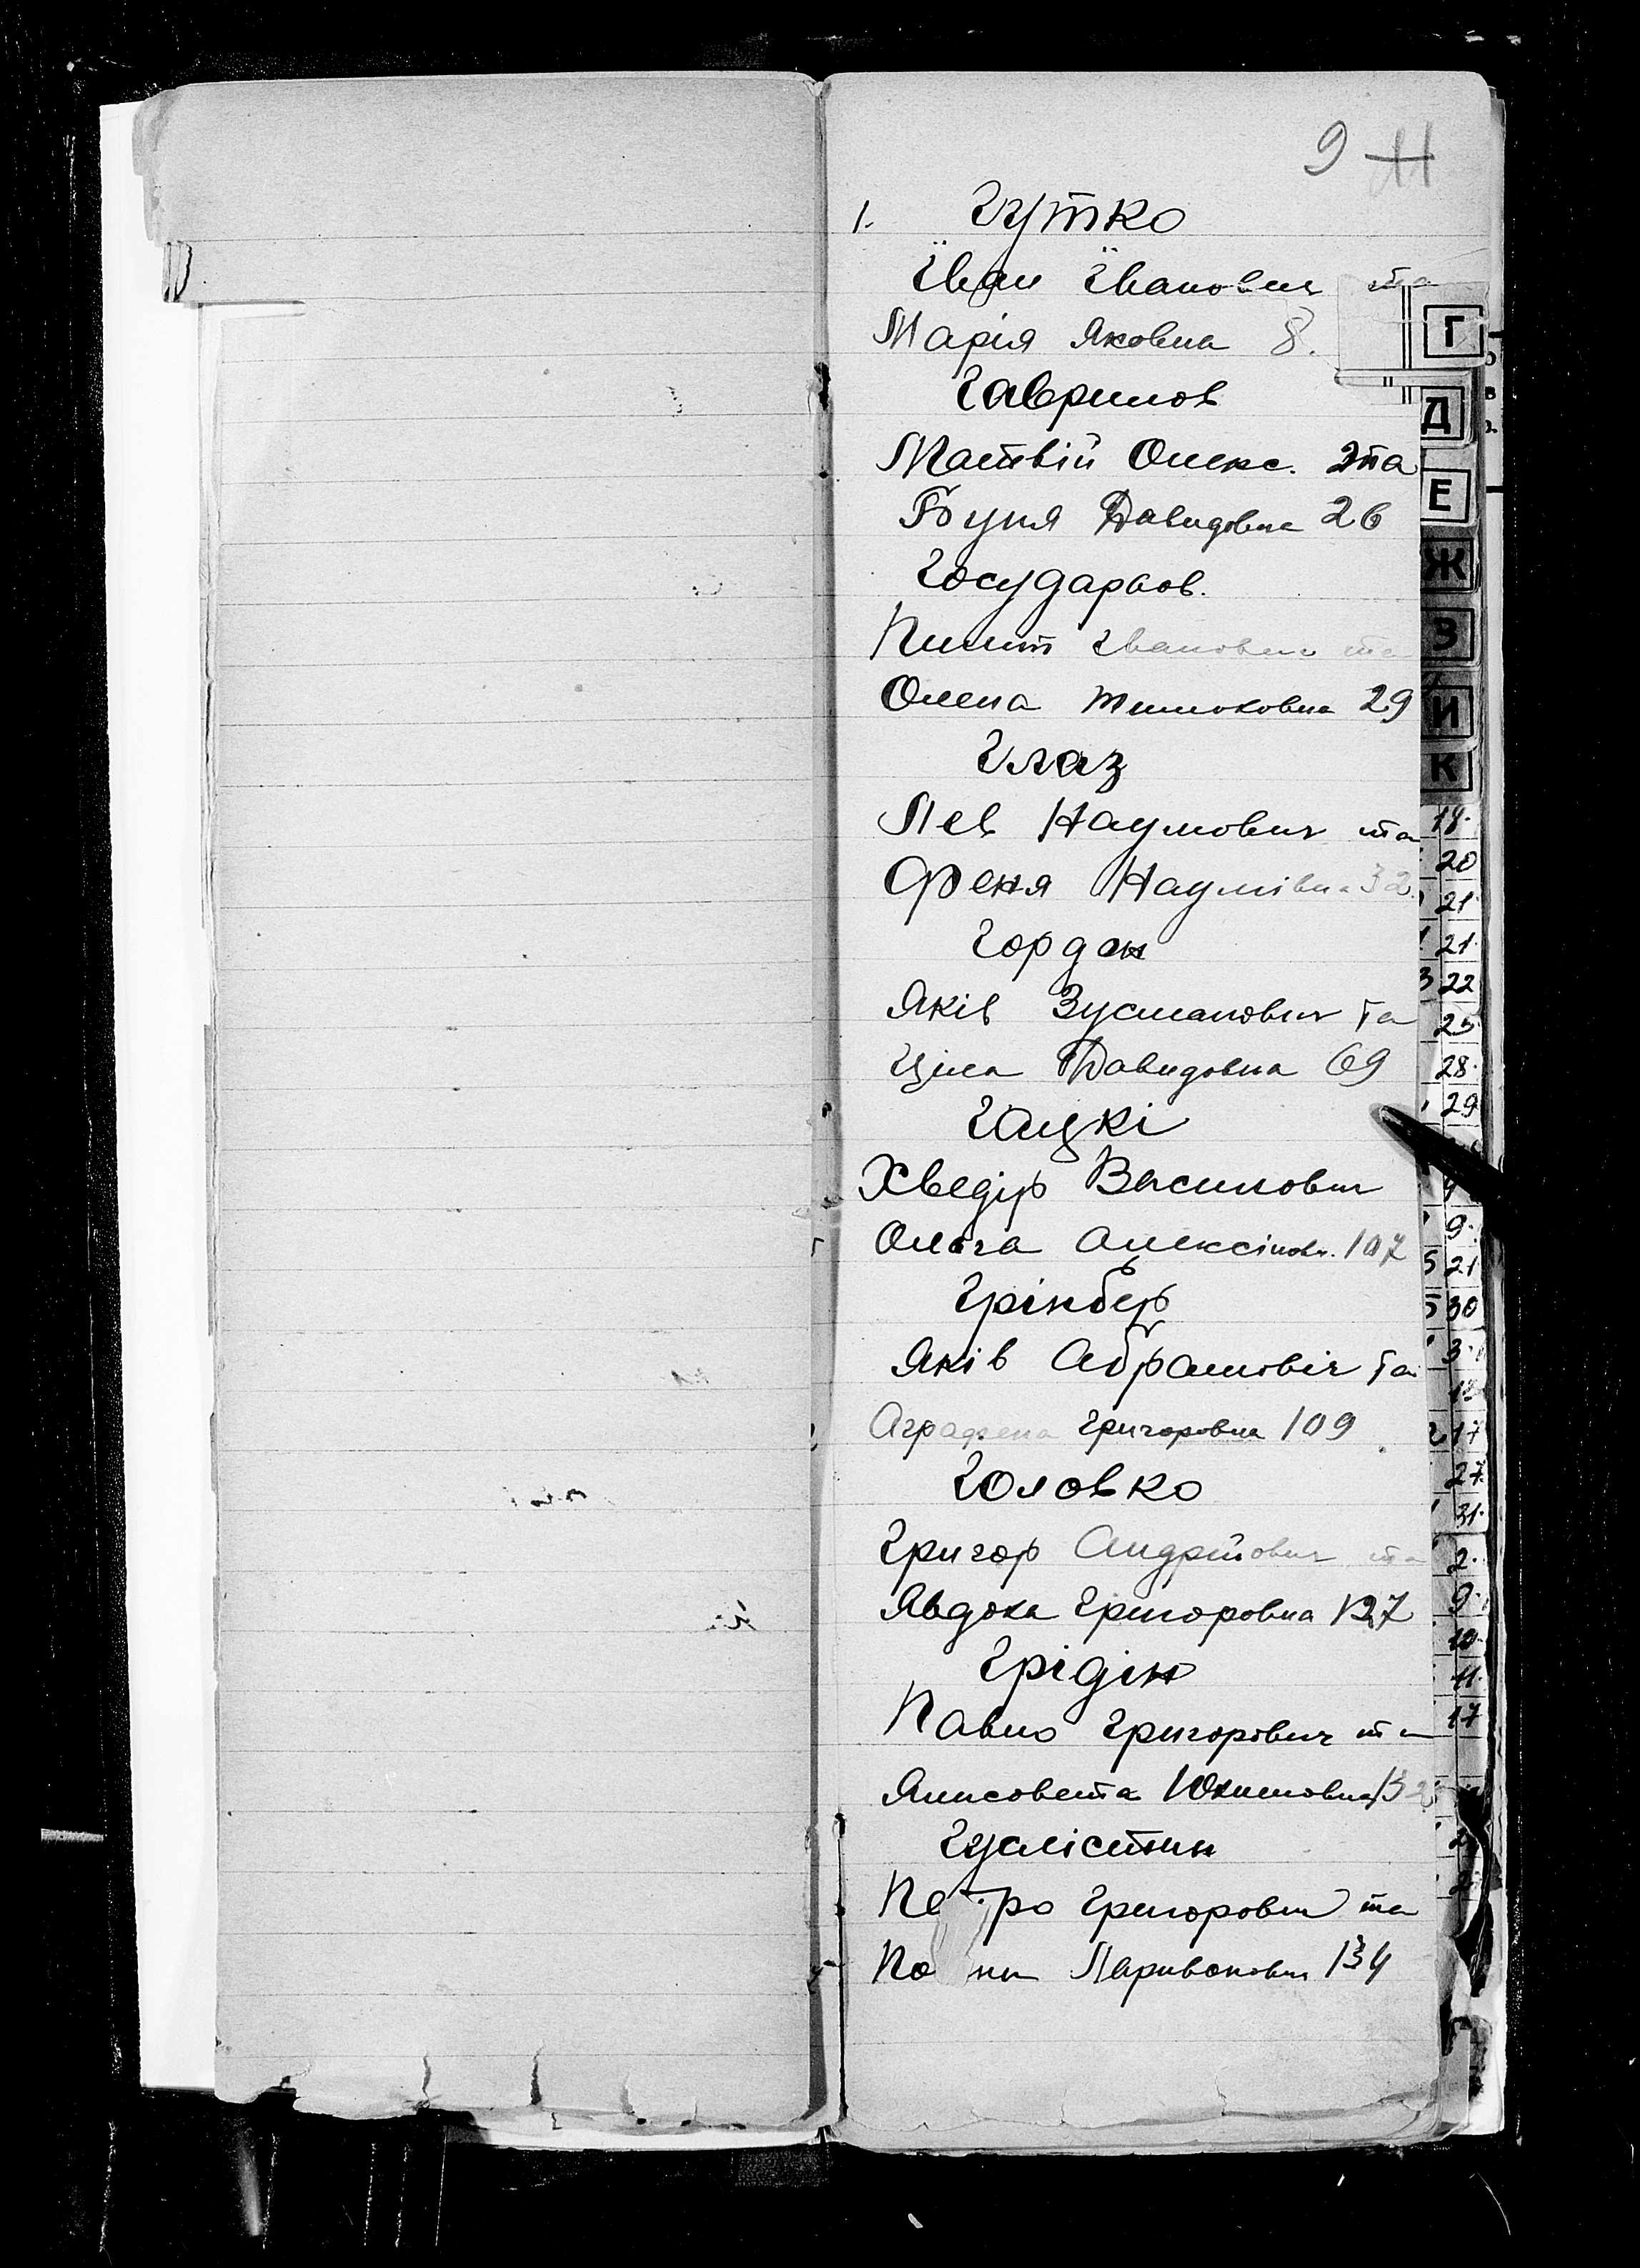 9 11
1. Гутко
Іван Іванович та
Марія Яковна 8.
Гаврилов
Матвій Олекс. та
Буня Давидовна 26
Государьов.
Пилип Іванович та
Олена Тимоховна 29
Глаз
Лев Наумович та
Феня Наумівна 32
Гордон
Яків Зусманович та
Ціля Давидовна 69
Гацкі
Хведір Василович
Ольга Алексіповн. 107
Грінбер
Яків Абрамовіч та
Аграфена Григоровна 109
Головко
Григор Андрійович та
Явдоха Григоровна 127
Грідін
Павло Григорович та
Ялисовета Юхимовна 132
Гуслістин
Петро Григорович та
Ларивоновн 134
Г
Д
Е
Ж
З
И
К
18.
20
21
21.
22
25
28.
29
9.
21
30
3.
13
17
27.
31.
2.
9.
10.
11.
17